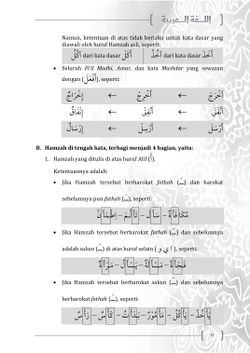 اللـغـة الـعـربـيـة
Namun, ketentuan di atas tidak berlaku untuk kata dasar yang
diawali oleh huruf Hamzah asli, seperti:
أَخَذَ dari kata dasar أُخِذُ أَكَلَ dari kata dasar أُكُلُ
• Seluruh Fi'il Madhi, Amar, dan kata Mashdar yang sewazan
dengan (أَفْعَلَ), seperti:
أَخْرَجَ ← أَخْرِجْ ← إِخْرَاجٌ
أَنْفَقَ ← أَنْفِقْ ← إِنْفَاقٌ
أَرْسَلَ ← أَرْسِلْ ← إِرْسَالٌ
B. Hamzah di tengah kata, terbagi menjadi 4 bagian, yaitu:
1. Hamzah yang ditulis di atas huruf Alif (أ).
Ketentuannya adalah:
• Jika Hamzah tersebut berharokat fathah (ـَ) dan harokat
sebelumnya pun fathah (ـَ), seperti:
مُكَافَأَةٌ – سَأَلَ – تَأَلَّمَ – اِطْمَأَنَّ
• Jika Hamzah tersebut berharokat fathah (ـَ) dan sebelumnya
adalah sukun (ـْ) di atas huruf selain ( ا ي و ), seperti:
فَجْأَةٌ – مَسْأَلَةٌ – يَسْأَلُ – مَرْأَةٌ
• Jika Hamzah tersebut berharokat sukun (ـْ) dan sebelumnya
berharokat fathah (ـَ), seperti:
يَأْخُذُ – يَأْكُلُ – مَأْمُوْرٌ – يَأْمُلُ – كَأْسٌ – رَأْسٌ